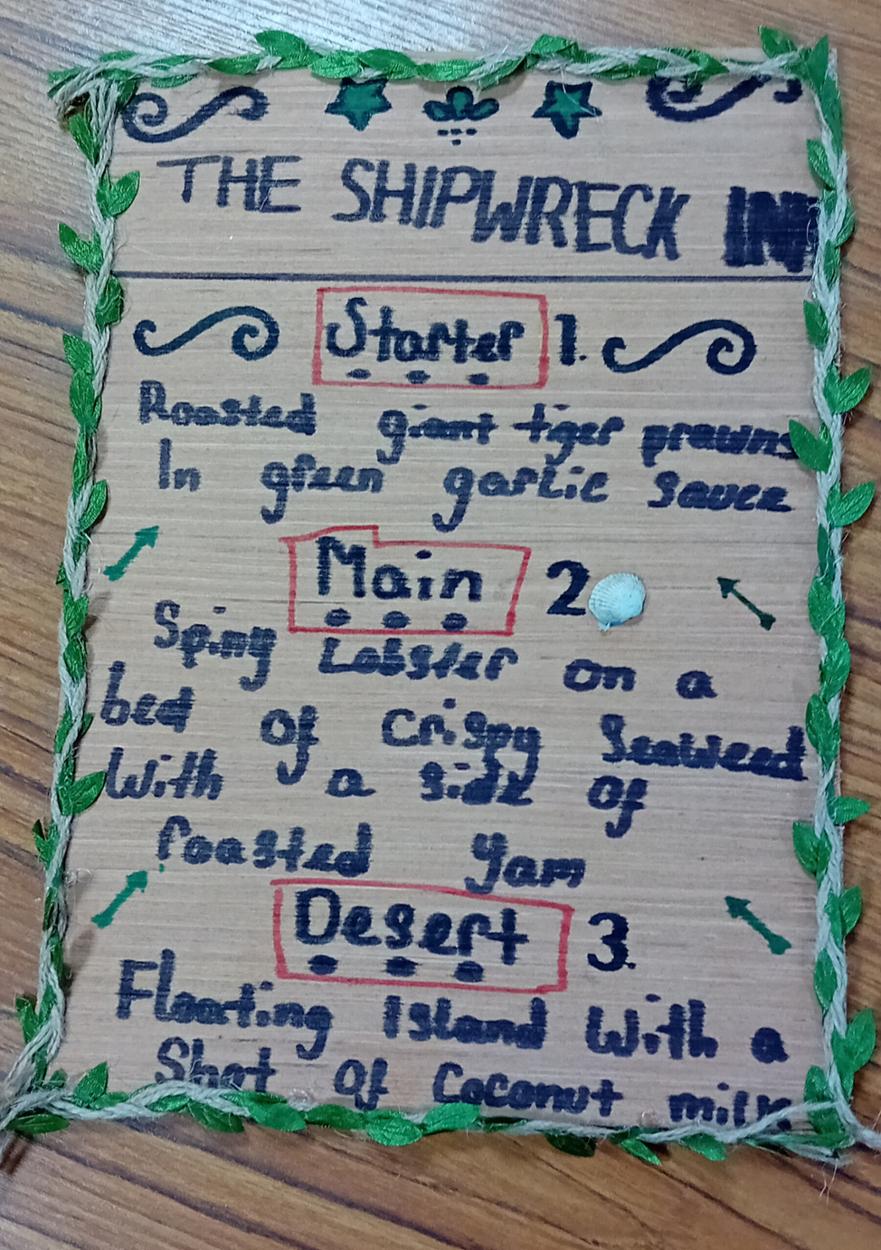 THE SHIPWRECK INN
Starter 1.
Roasted giant tiger prawns
In green garlic sauce
Main 2
Spiny Lobster on a
bed of Crispy Seaweed
With a side of
roasted yam
Desert 3.
Floating Island With a
Shot of Coconut milk